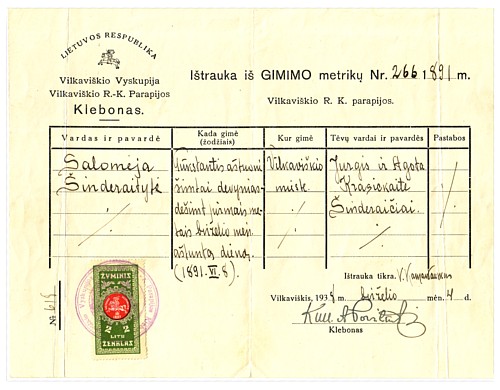 LIETUVOS RESPUBLIKA
Vilkaviškio Vyskupija
Vilkaviškio R.-K. Parapijos
Klebonas.
Ištrauka iš GIMIMO metrikų Nr. 266 1891 m.
Vilkaviškio R. K. parapijos.
Vardas ir pavardė
Kada gimė (žodžiais)
Kur gimė
Tėvų vardai ir pavardės
Pastabos
Salomėja
Šinderaitytė
tūkstantis aštuoni
šimtai devynias
dešimt pirmais me-
tais birželio mėn.
aštuntą dieną.
(1891.VI.8)
Vilkaviškio
mieste.
Jurgis ir Agota
Krasickaitė
Šinderaičiai.
Ištrauka tikra.
Vilkaviškis, 1938 m. birželio mėn. 4 d.
Kun.
Klebonas
№ 615
ŽYMINIS
2 2
LITU
ŽENKLAS